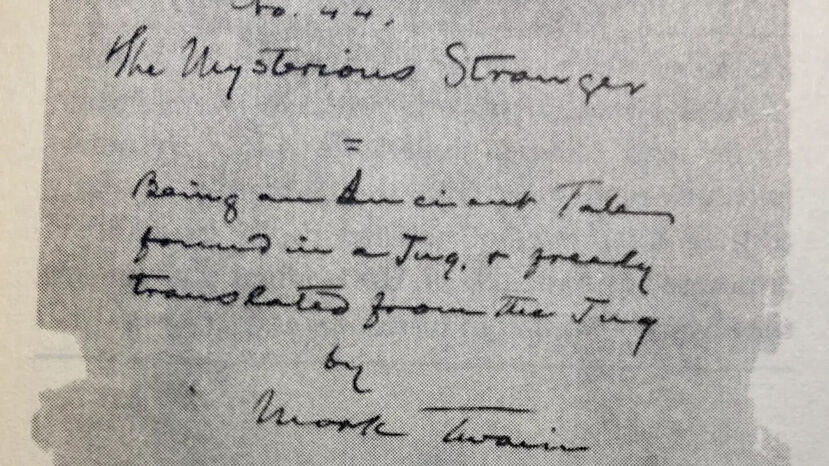 No. 44,
The Mysterious Stranger
=
Being an Ancient Tale
found in a Jug, & freely
translated from the Jug
by
Mark Twain